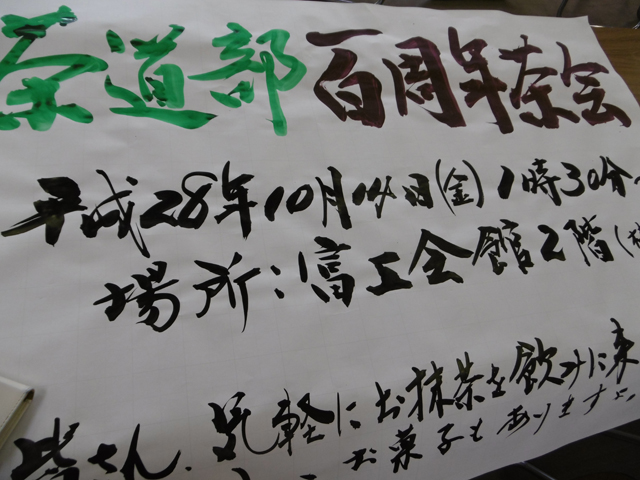 茶道部 百周年茶会
平成28年10月14日(金) 1時30分
場所:富工会館2階(
皆さん、気軽にお抹茶を飲みに来
お菓子もあります。